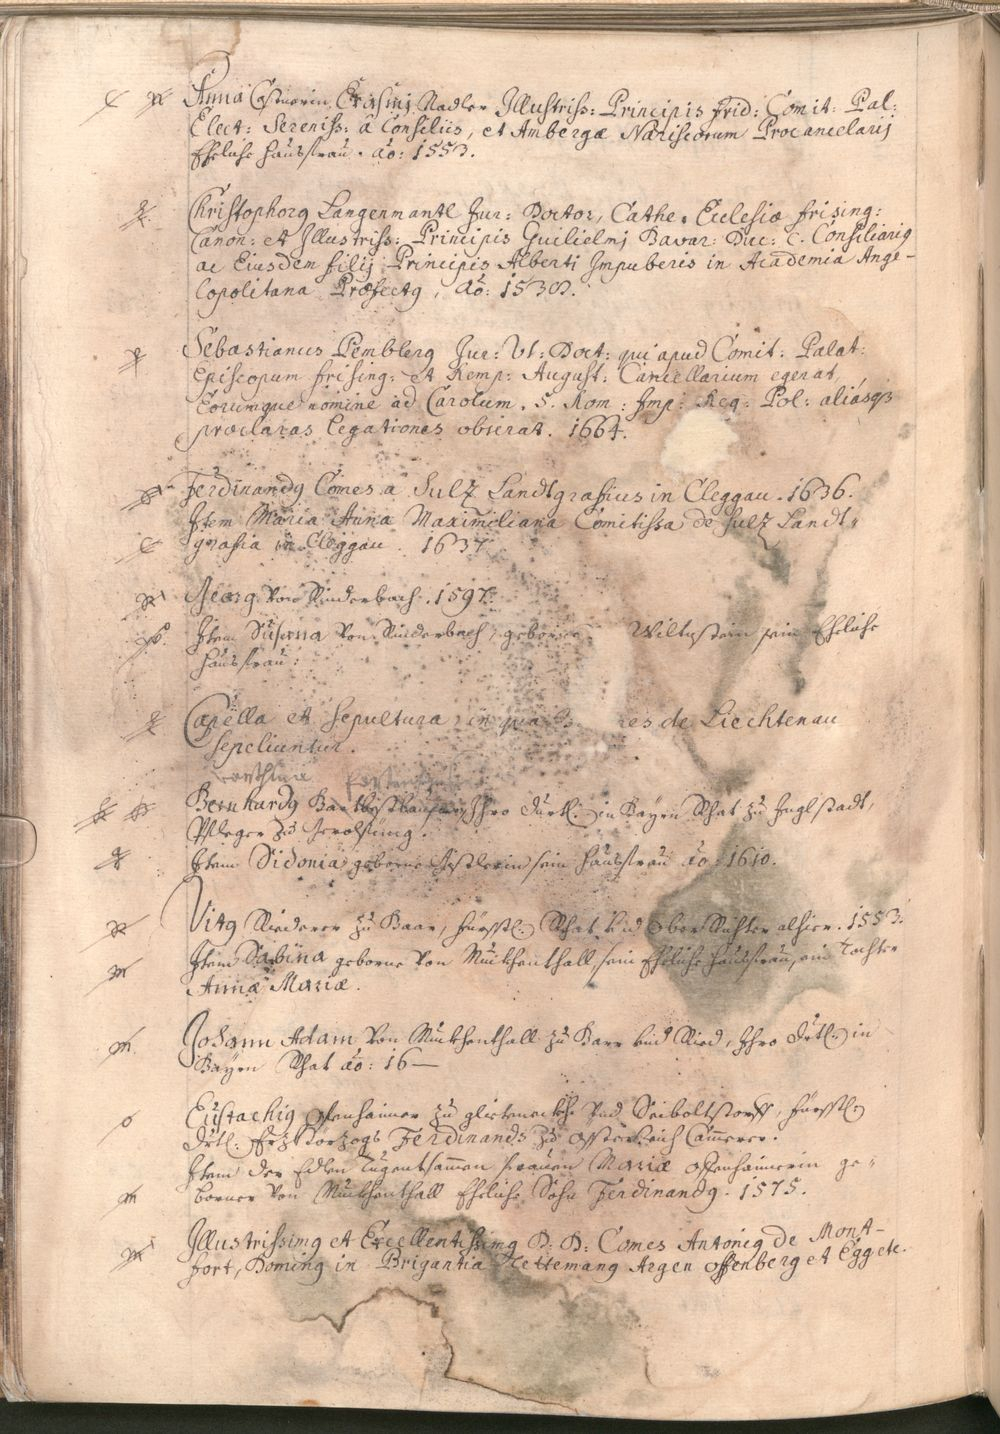 Anna Castnerin, Erasmj Nadler Illustriss: Principis Frid: Comit: Pal:
Elect: Sereniss: â Consiliis, et Ambergæ Nariscorum Procancelarij
Eheliche Haußfrau. Ao: 1553.
Christophorg Langenmantl Jur: Doctor, Cathe: Ecclesiæ frising:
Canon: et Illustriss: Principis Guilielmj Bavar: Duc: c. Consiliarig
ac Eiusdem filij Principis Alberti Impuberis in Academia Ange-
lopolitana Præfectg, Ao:
Sebastianus Pemblerg Jur: Vt: Doct: qui apud Comit: Palat:
Episcopum frising: et Remp: August: Cancellarium egerat,
Eorumque nomine ad Carolum. 5. Rom: Imp: Reg: Pol: aliásq3
præclaras legationes obierat. 1664.
Ferdinandg Comes a Sulz Landtgrafius in Cleggau. 1636.
Item Maria Anna Maximiliana Comitissa de Sulz Landt-
grafia in Cleggau. 1637
Georg Von Rinderbach. 1597.
Item Susana Von Rinderbach, geborne sein Eheliche
Haußfrau.
Capella et Sepultura in qua de Liechtenau
sepeliuntur.
Bernhardg Ihro Durtl: in Bayrn Rhat zu Inglstadt,
Pfleger zu
Item Sidonia geborne sein Haußfrau ao: 1610.
Vitg Riederer zu Baar, fürstl: Rhat und Ober Richter alhier. 1553.
Item Sabina geborne Von Muckhenthall sein Eheliche Haußfrau, ein Tochter
Annæ Mariæ.
Johann Adam Von Muckhenthall zu Barr und Ried, Ihro Drtl: in
Bayrn Rhat ao: 16—
Eustachig zu und Seiboltstorff, fürstl:
Drtl: Erzherzogs Ferdinands zu Österreich Cammerer.
Item der Edlen Tugentsammen Frauen Mariæ ge-
borner Von Muckhenthall Eheliche Sohn Ferdinandg. 1575.
Illustrissimg et Excellentissimg D: D: Comes Antonig de Mont-
fort, Doming in Brigantia Tettemang Argen et Egg etc.